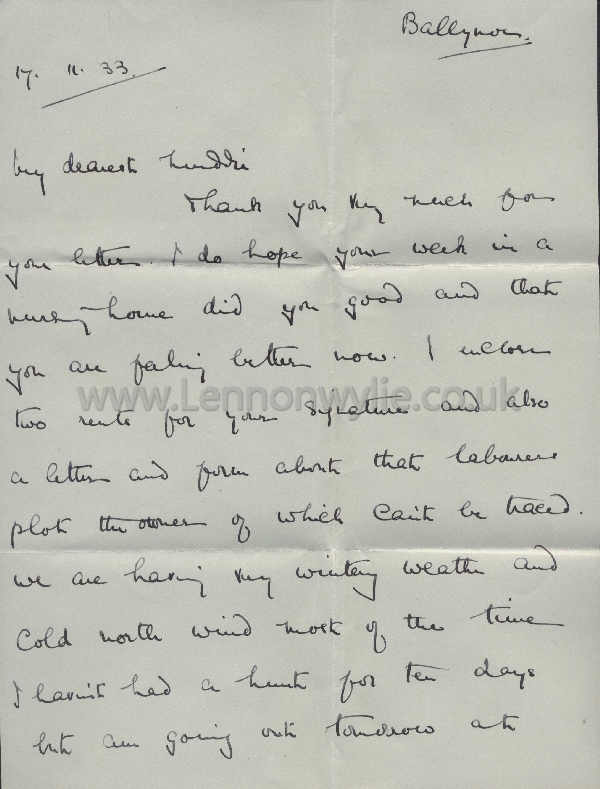 17. 11. 33.
My dearest
Thank you very much for
your letter. I do hope your week in a
nursing-home did you good and that
you are feeling better now. I enclose
www.Lennonwylie.co.uk
two rents for your signature and also
a letter and form about that labourers
plot the owner of which can't be traced.
We are having very wintery weather and
cold north wind most of the time
I havn't had a hunt for ten days
but am going out tomorrow at